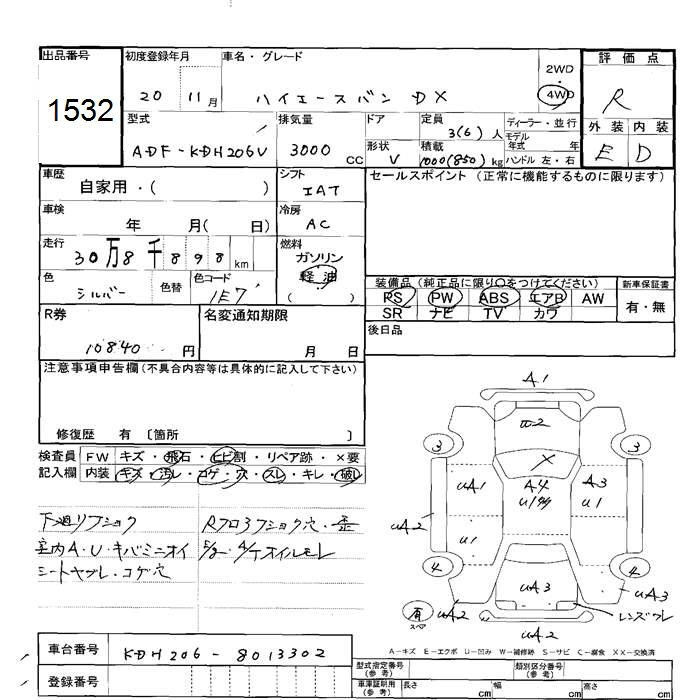 出品番号 初度登録年月 車名・グレード 評価点
1532 20 11月 ハイエースバン DX 2WD・4WD R
型式 排気量 ドア 定員 ディーラー・並行 外装 内装
ADF-KDH206V 3000CC 3(6)人 モデル年式 年式 E D
形状 V 積載 1000(850)kg ハンドル 左・右
車歴 自家用・( ) シフト IAT セールスポイント (正常に機能するものに限ります)
車検 年 月( 日) 冷房 AC
走行 30万8千898km 燃料 ガソリン 軽油 ( )
色 シルバー 色替 色コード 1E7
装備品 (純正品に限り○をつけてください) 新車保証書
PS PW ABS エアB AW 有・無
SR ナビ TV カワ
R券 名変通知期限 後日品
10840円 月 日
注意事項申告欄 (不具合内容等は具体的に記入して下さい)
修復歴 有 〔箇所 〕
検査員記入欄 FW キズ・飛石・ヒビ割・リペア跡・×要
内装 キズ・汚レ・コゲ・穴・スレ・キレ・破レ
下廻リフショク
室内A・U・キバミニオイ
シートヤブレ・コゲ穴
Rフロアフショク穴・歪
オイルモレ
A1
3 3
X
A4
A3
UA1
U1
U1
UA2
4 4
UA3
UA3
有 スペア
UA2
レンズワレ
UA2
A-キズ E-エクボ U-凹み W-補修跡 S-サビ C-腐食 XX-交換済
車台番号 KDH206-8013302
登録番号
型式指定番号(参考) 類別区分番号(参考)
車庫証明用(参考) 長さ cm 幅 cm 高さ cm